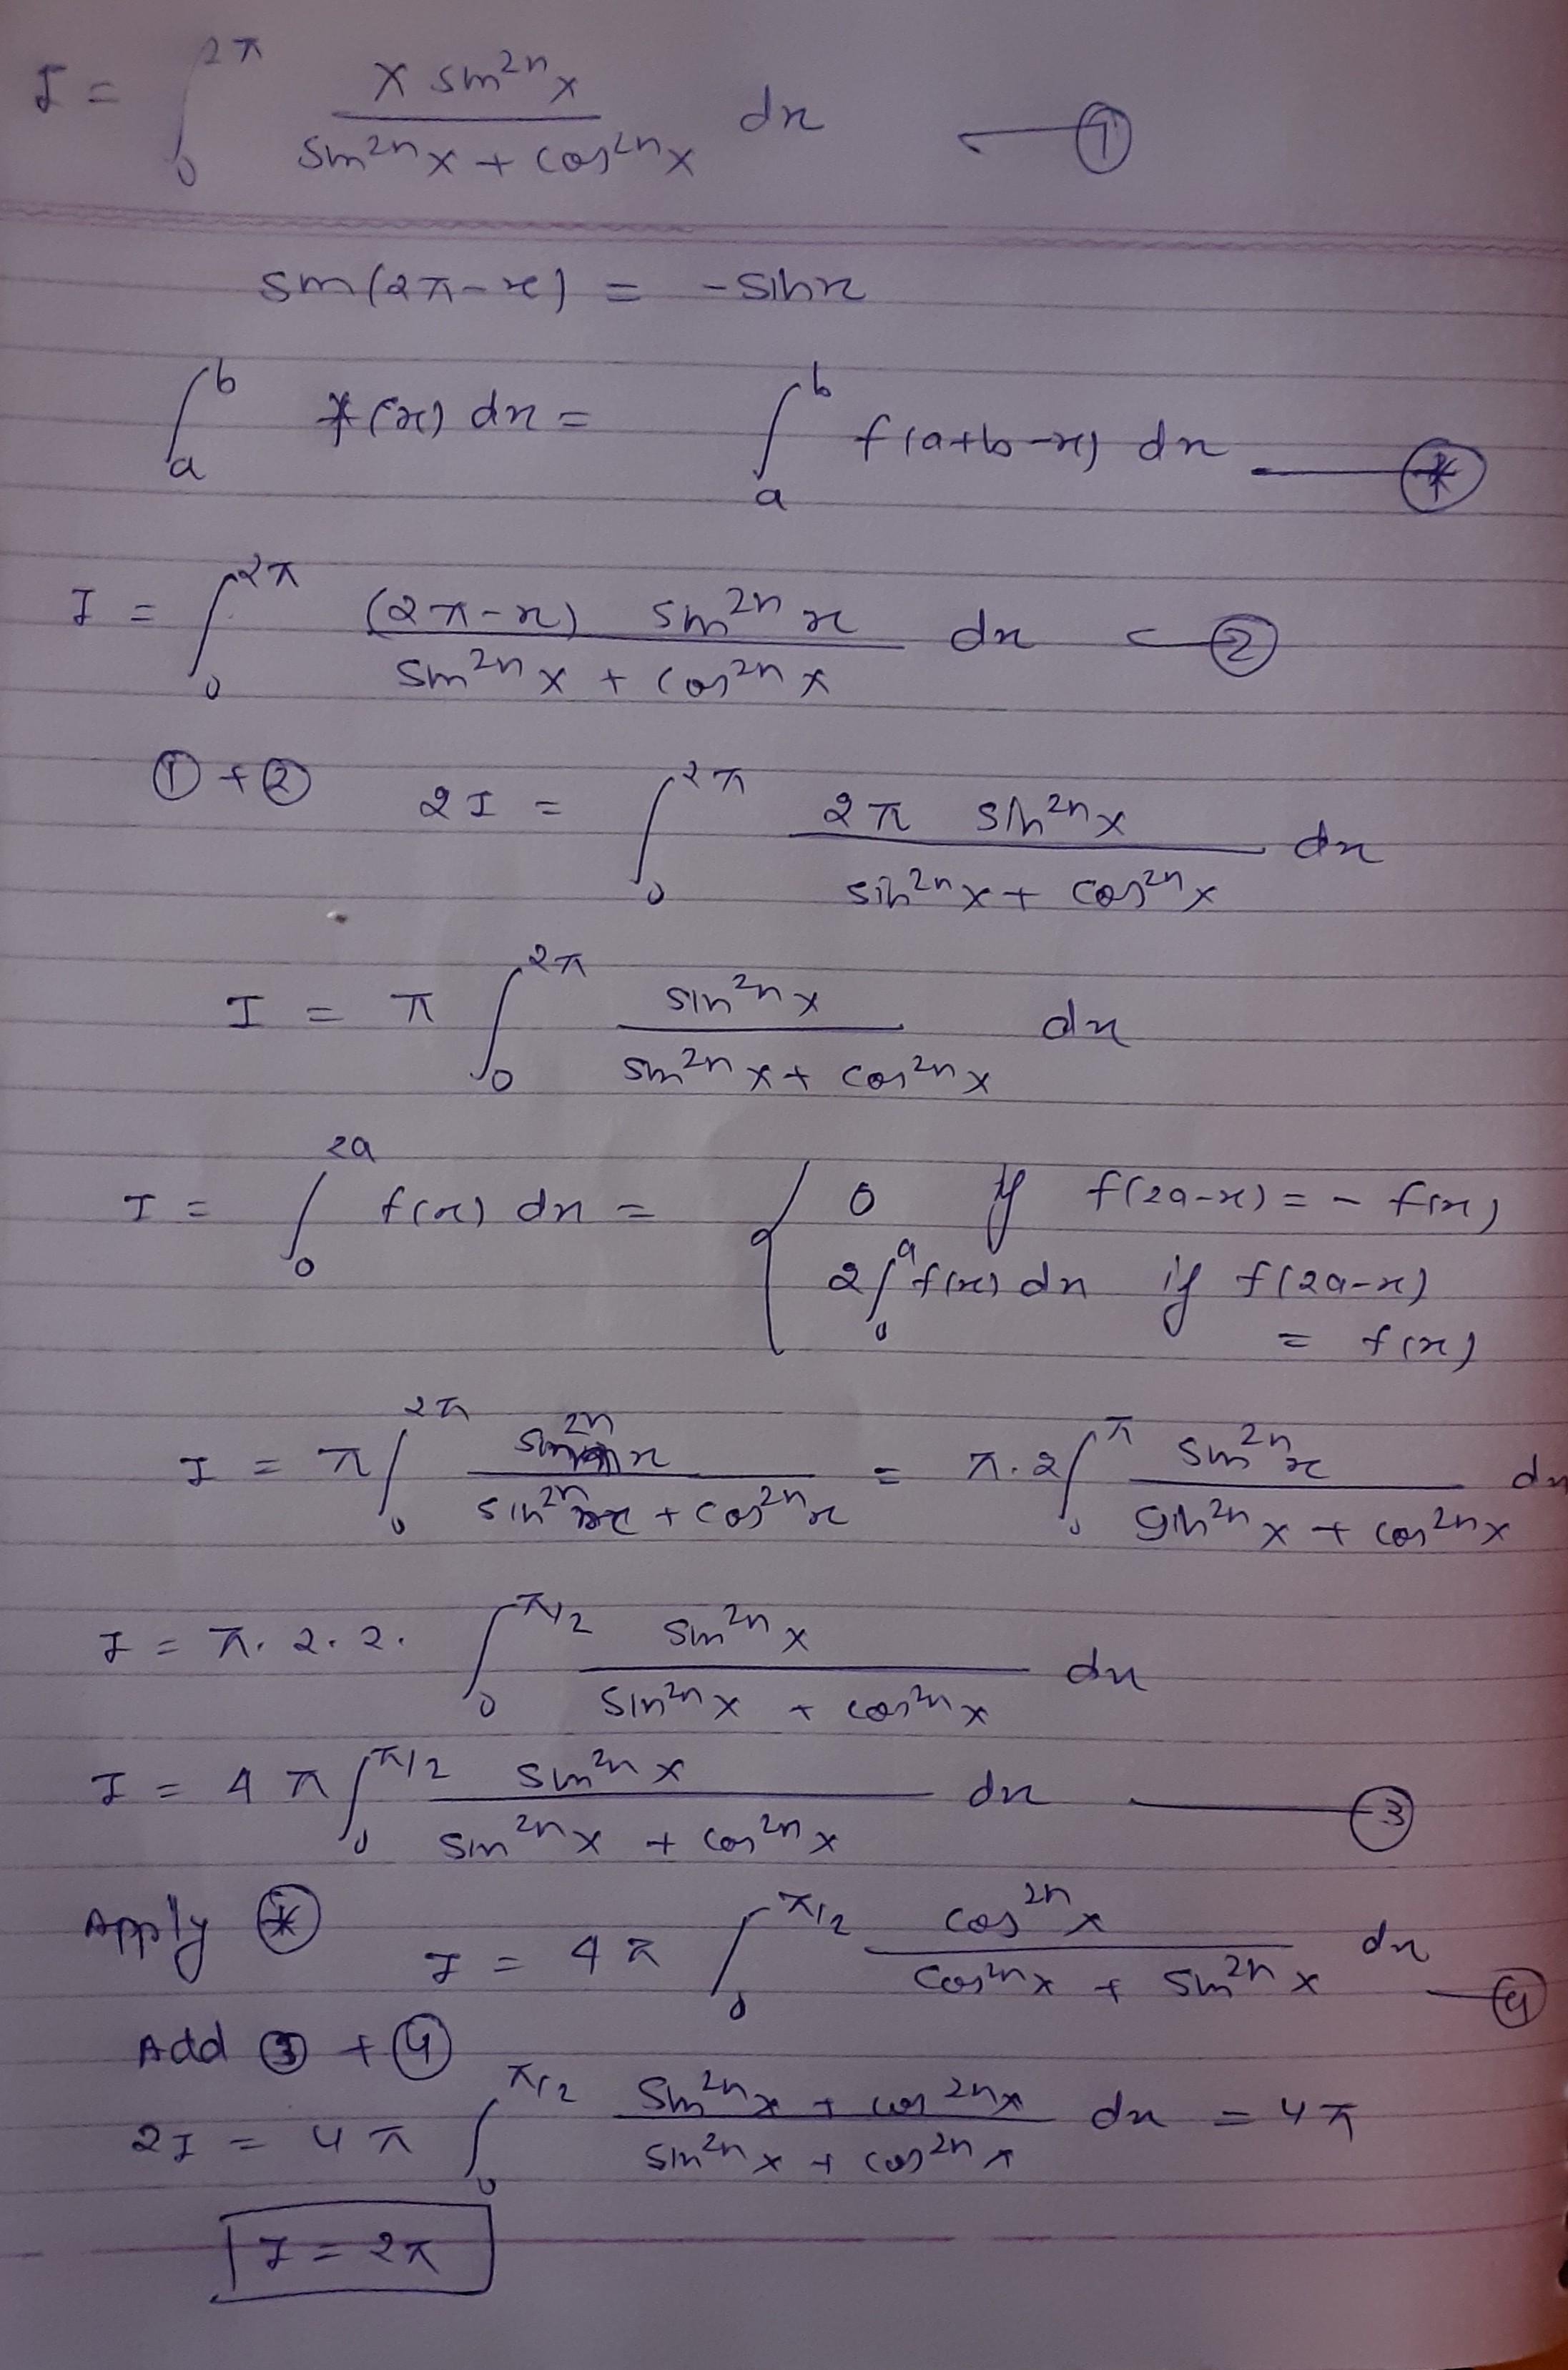 I = ∫₀^2π (x sin^2n x)/(sin^2n x + cos^2n x) dx — ①
sin(2π-x) = -sinx
∫ₐ^b f(x) dx = ∫ₐ^b f(a+b-x) dx — ⊛
I = ∫₀^2π ((2π-x) sin^2n x)/(sin^2n x + cos^2n x) dx — ②
① + ② 2I = ∫₀^2π (2π sin^2n x)/(sin^2n x + cos^2n x) dx
I = π ∫₀^2π (sin^2n x)/(sin^2n x + cos^2n x) dx
I = ∫₀^2a f(x) dx = { 0 if f(2a-x) = - f(x)
2∫₀^a f(x) dx if f(2a-x)
= f(x)
I = π ∫₀^2π (sin^2n x)/(sin^2n x + cos^2n x) = π.2∫₀^π (sin^2n x)/(sin^2n x + cos^2n x) dx
I = π.2.2. ∫₀^π/2 (sin^2n x)/(sin^2n x + cos^2n x) dx
I = 4π ∫₀^π/2 (sin^2n x)/(sin^2n x + cos^2n x) dx — ③
Apply ⊛ I = 4π ∫₀^π/2 (cos^2n x)/(cos^2n x + sin^2n x) dx — ④
Add ③ + ④
2I = 4π ∫₀^π/2 (sin^2n x + cos^2n x)/(sin^2n x + cos^2n x) dx = 4π
I = 2π